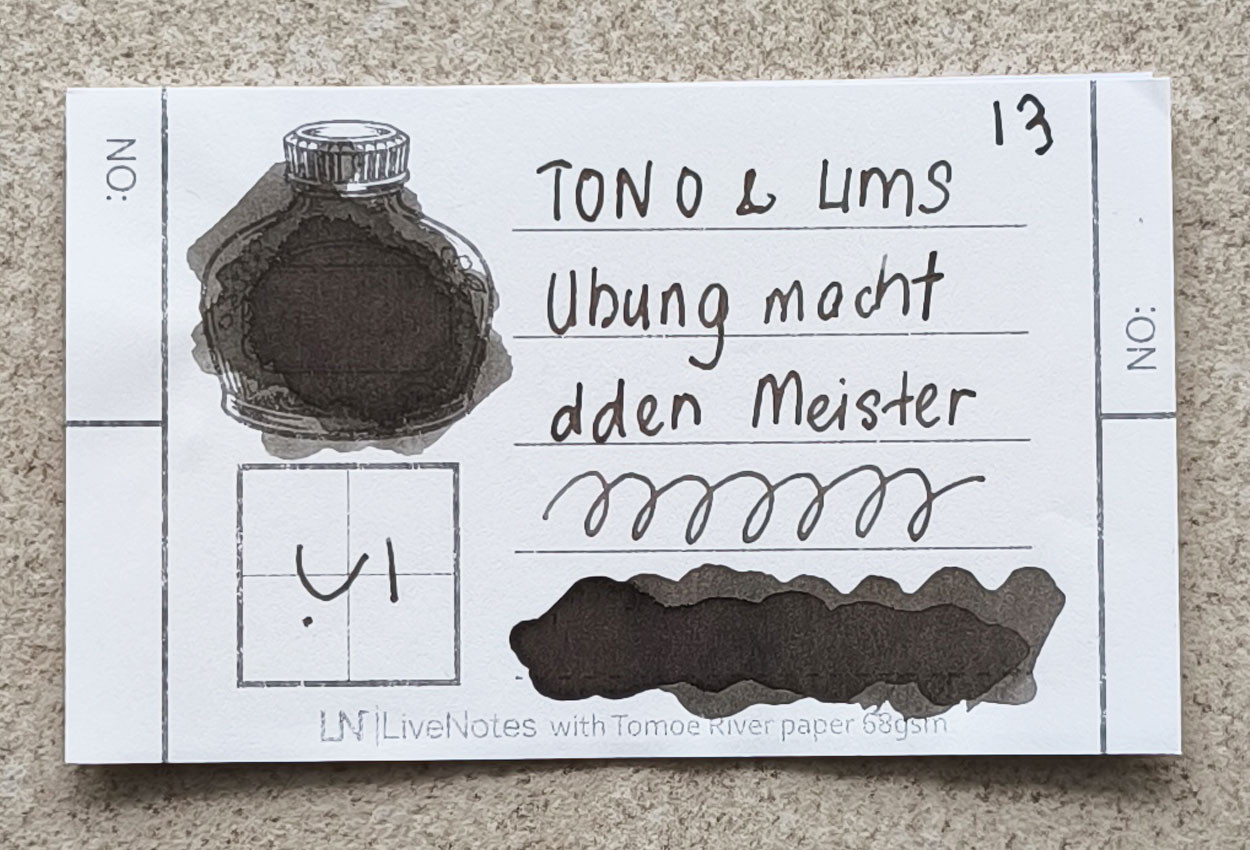 13
NO:
TONO & LIMS
Ubung macht
dden Meister
NO:
LN|LiveNotes with Tomoe River paper 68gsm